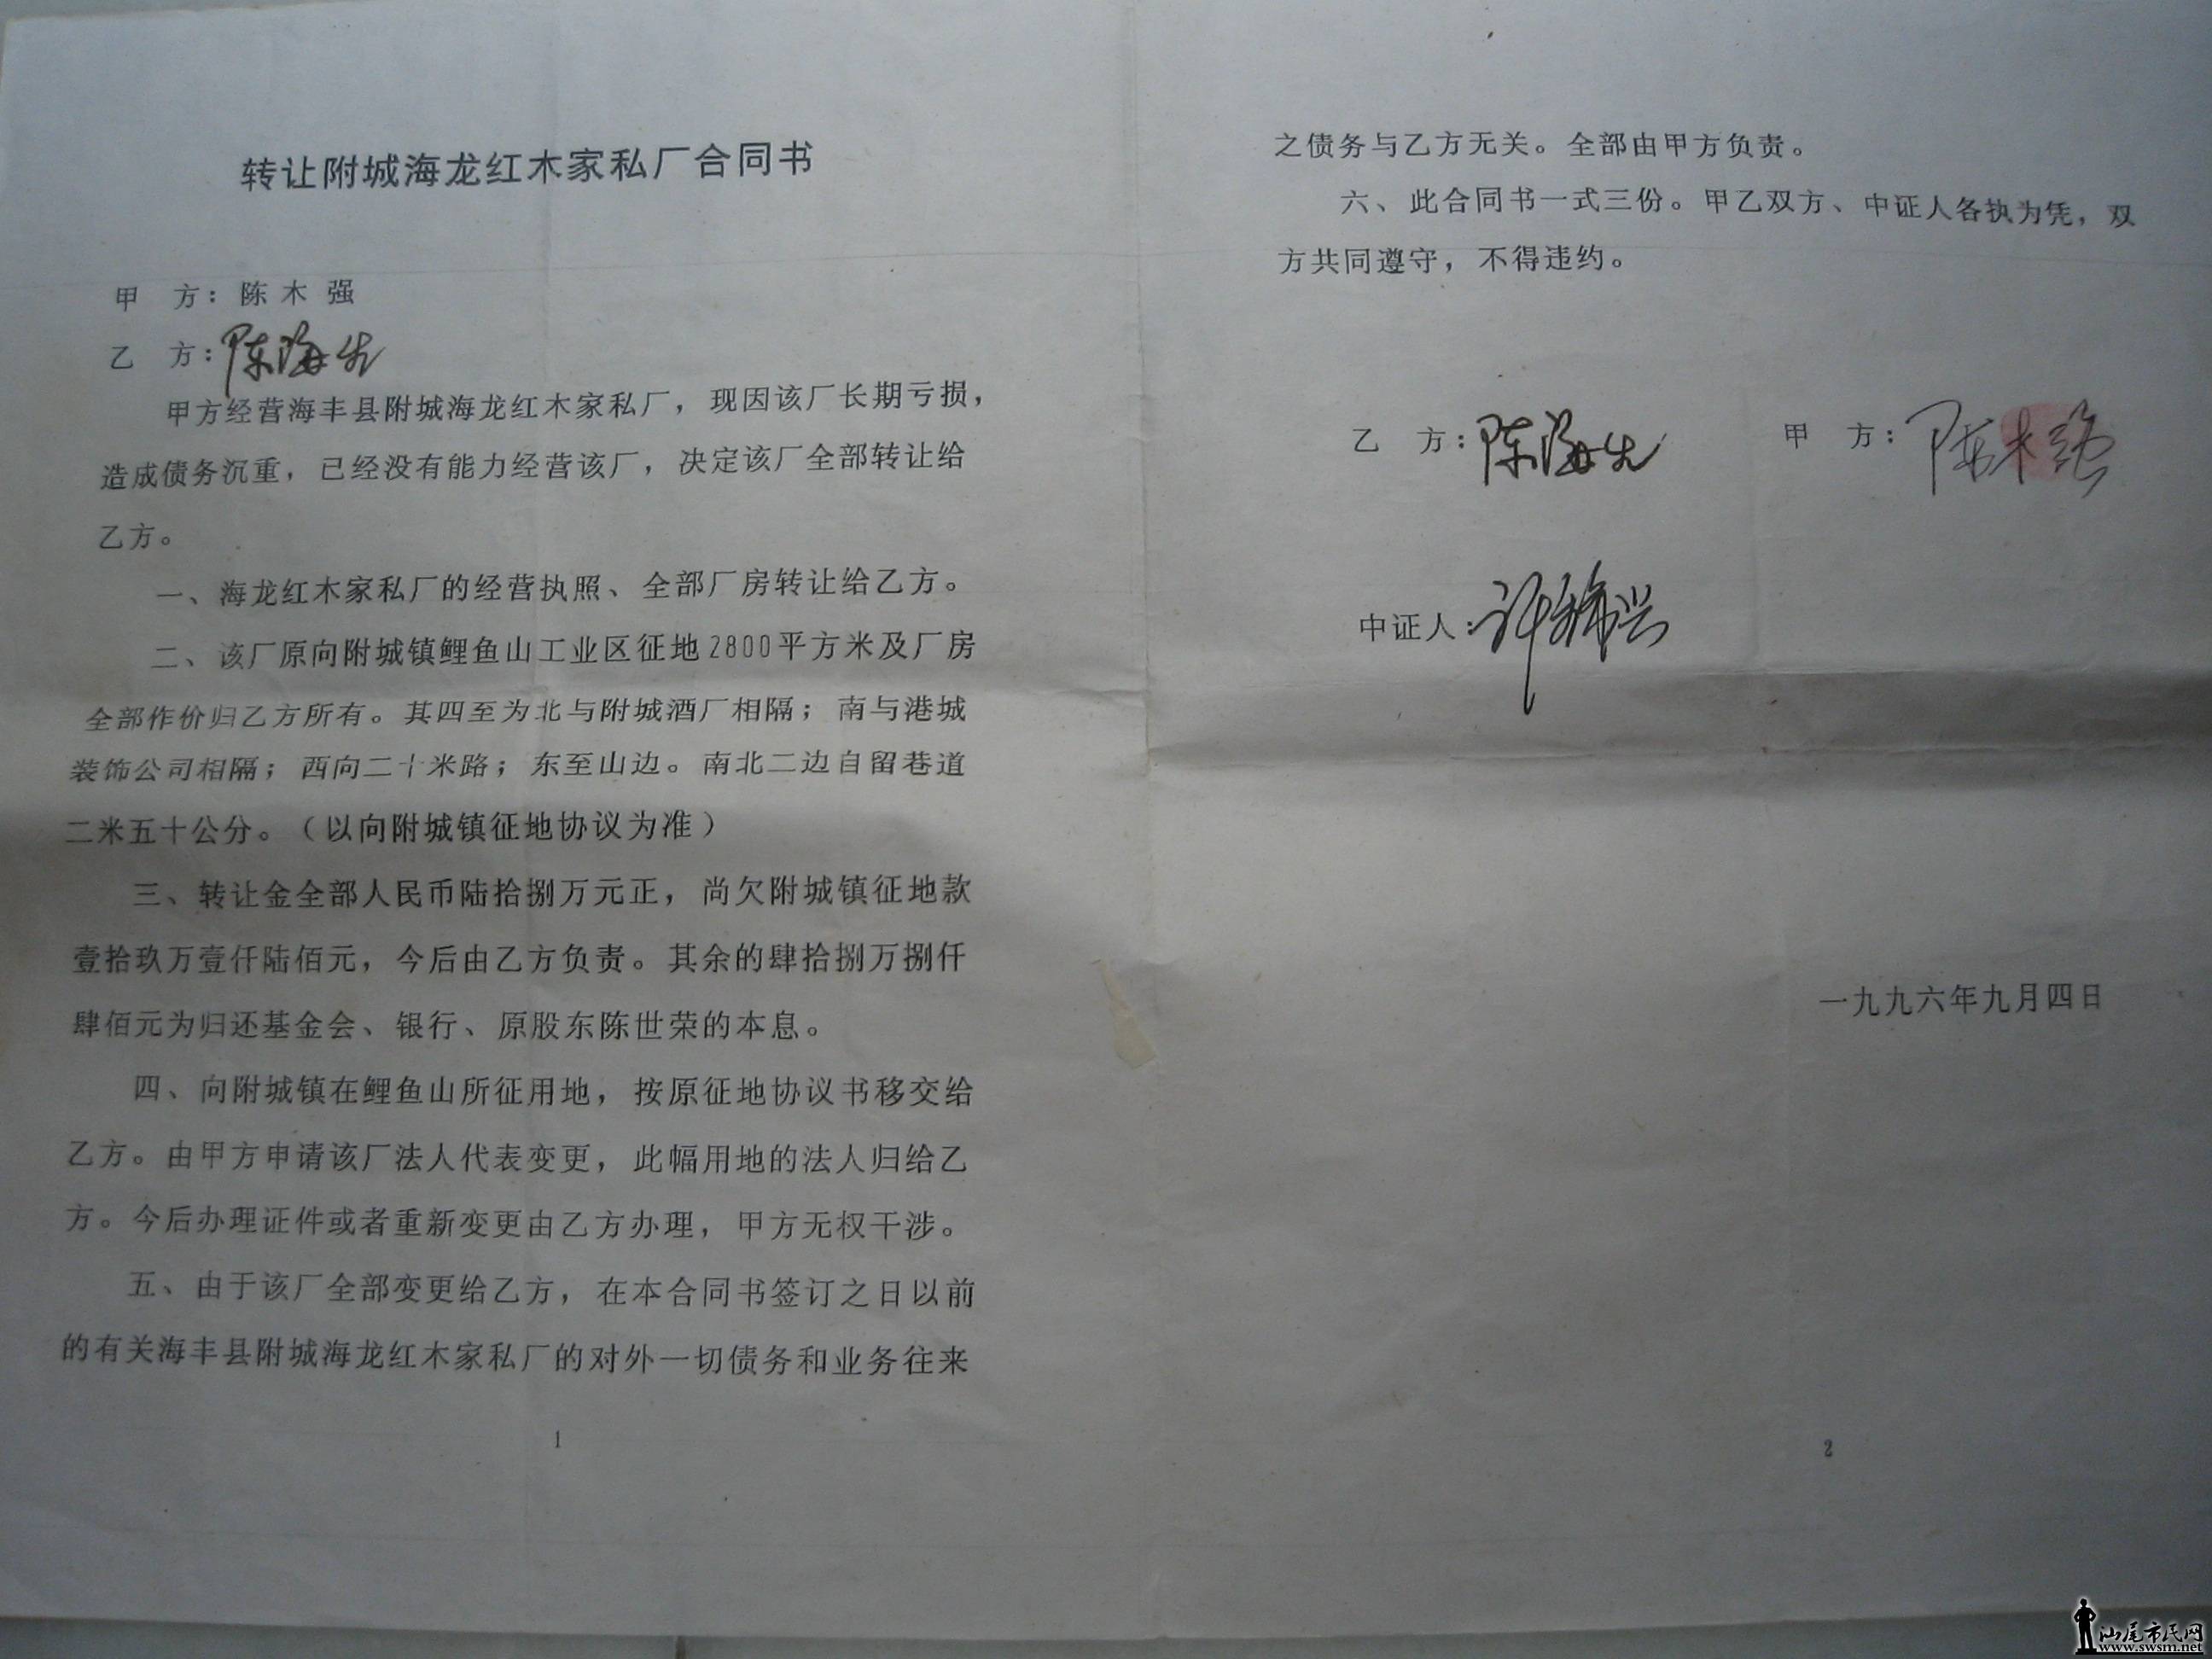 转让附城海龙红木家私厂合同书
甲 方：陈木强
乙 方：陈海
甲方经营海丰县附城海龙红木家私厂，现因该厂长期亏损，
造成债务沉重，已经没有能力经营该厂，决定该厂全部转让给
乙方。
一、海龙红木家私厂的经营执照、全部厂房转让给乙方。
二、该厂原向附城镇鲤鱼山工业区征地2800平方米及厂房
全部作价归乙方所有。其四至为北与附城酒厂相隔；南与港城
装饰公司相隔；西向二十米路；东至山边。南北二边自留巷道
二米五十公分。（以向附城镇征地协议为准）
三、转让金全部人民币陆拾捌万元正，尚欠附城镇征地款
壹拾玖万壹仟陆佰元，今后由乙方负责。其余的肆拾捌万捌仟
肆佰元为归还基金会、银行、原股东陈世荣的本息。
四、向附城镇在鲤鱼山所征用地，按原征地协议书移交给
乙方。由甲方申请该厂法人代表变更，此幅用地的法人归给乙
方。今后办理证件或者重新变更由乙方办理，甲方无权干涉。
五、由于该厂全部变更给乙方，在本合同书签订之日以前
的有关海丰县附城海龙红木家私厂的对外一切债务和业务往来
1
之债务与乙方无关。全部由甲方负责。
六、此合同书一式三份。甲乙双方、中证人各执为凭，双
方共同遵守，不得违约。
乙 方：陈海 甲 方：陈木强
中证人：许
一九九六年九月四日
2
汕尾市民网
www.swsm.net